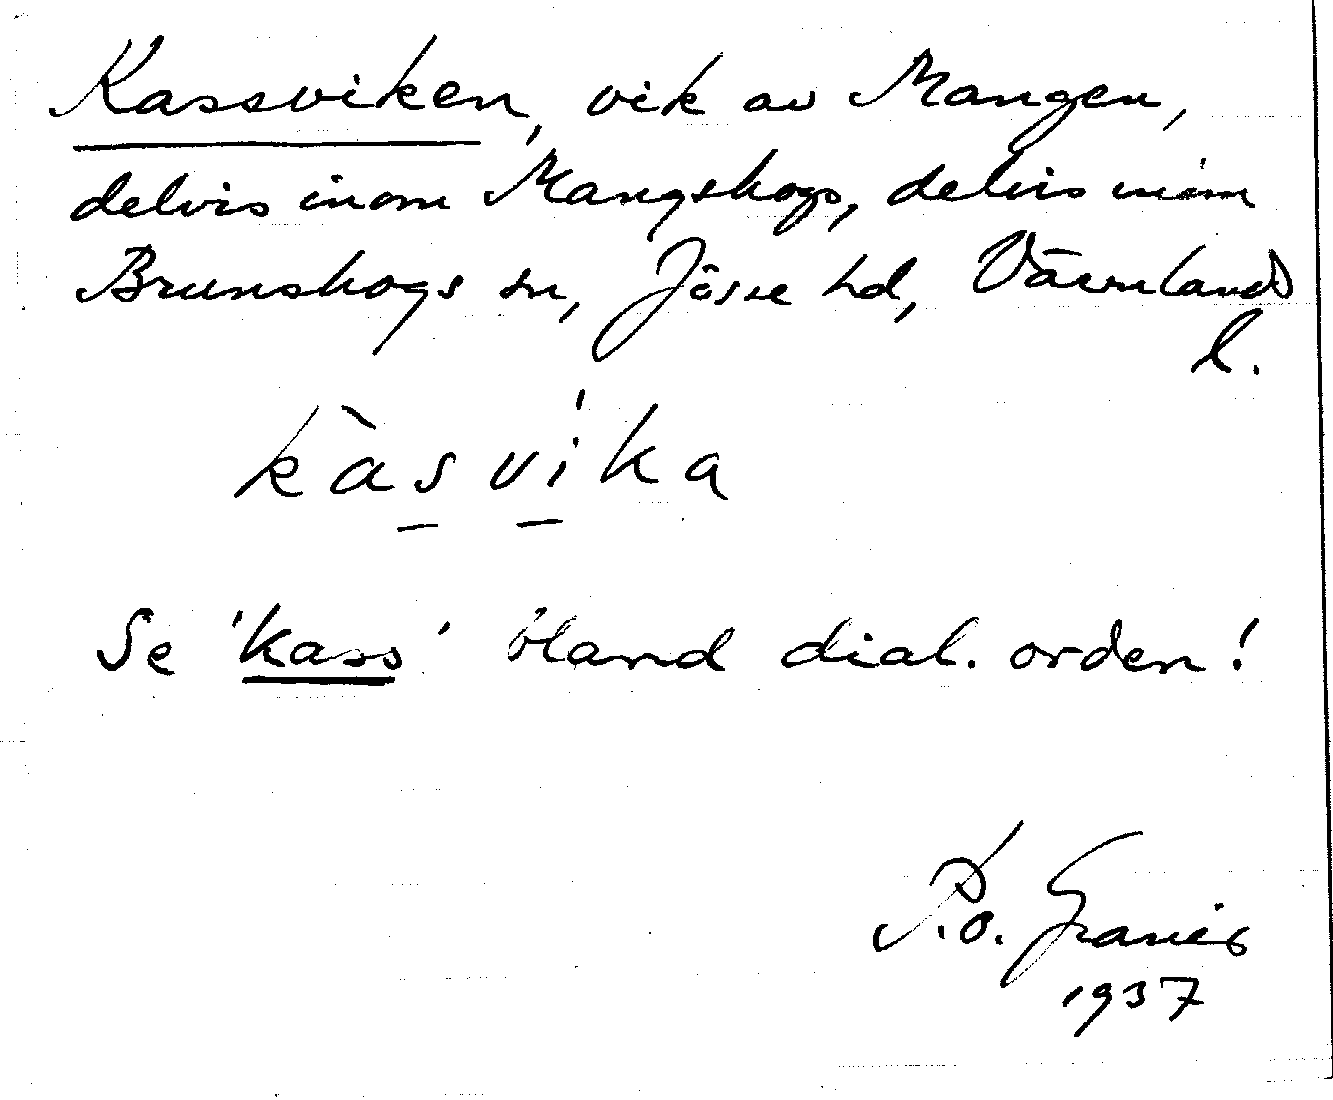 Kassviken, vik av Mangen,
delvis inom Mangskogs, delvis inom
Brunskogs sn, Jösse hd, Värmlands
l.
kàsvi'ka
Se 'kass' bland dial. orden!
P.O.
1937